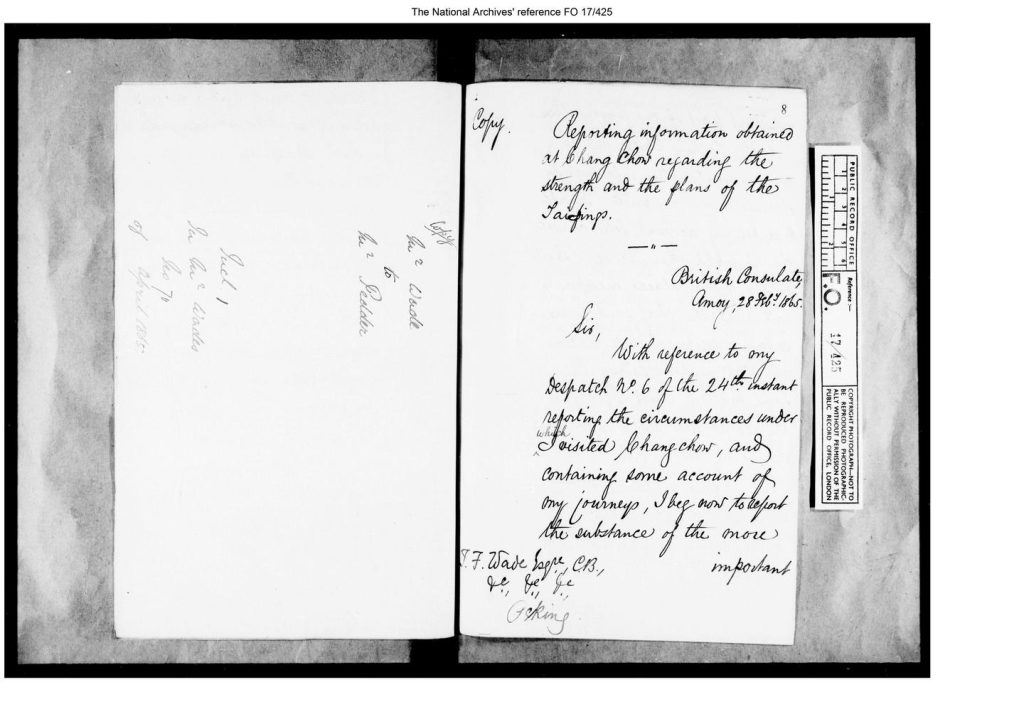 The National Archives' reference FO 17/425
8
Copy.
Reporting information obtained
at Chang Chow regarding the
strength and the plans of the
Taipings.
British Consulate,
Amoy, 28 Feby 1865.
Sir,
With reference to my
Despatch No. 6 of the 24th instant
reporting the circumstances under
which
I visited Changchow, and
containing some account of
my journeys, I beg now to report
the substance of the more
important
T. F. Wade Esqre, C.B.,
&c, &c, &c
Peking
Mr Wade
to
Mr Pedder
Incl 1
In Mr Wades
No 70
of April 1865
PUBLIC RECORD OFFICE
1 2 3 4 5 6
Reference:-
F.O.
17/425
COPYRIGHT PHOTOGRAPH—NOT TO
BE REPRODUCED PHOTOGRAPHIC-
ALLY WITHOUT PERMISSION OF THE
PUBLIC RECORD OFFICE, LONDON